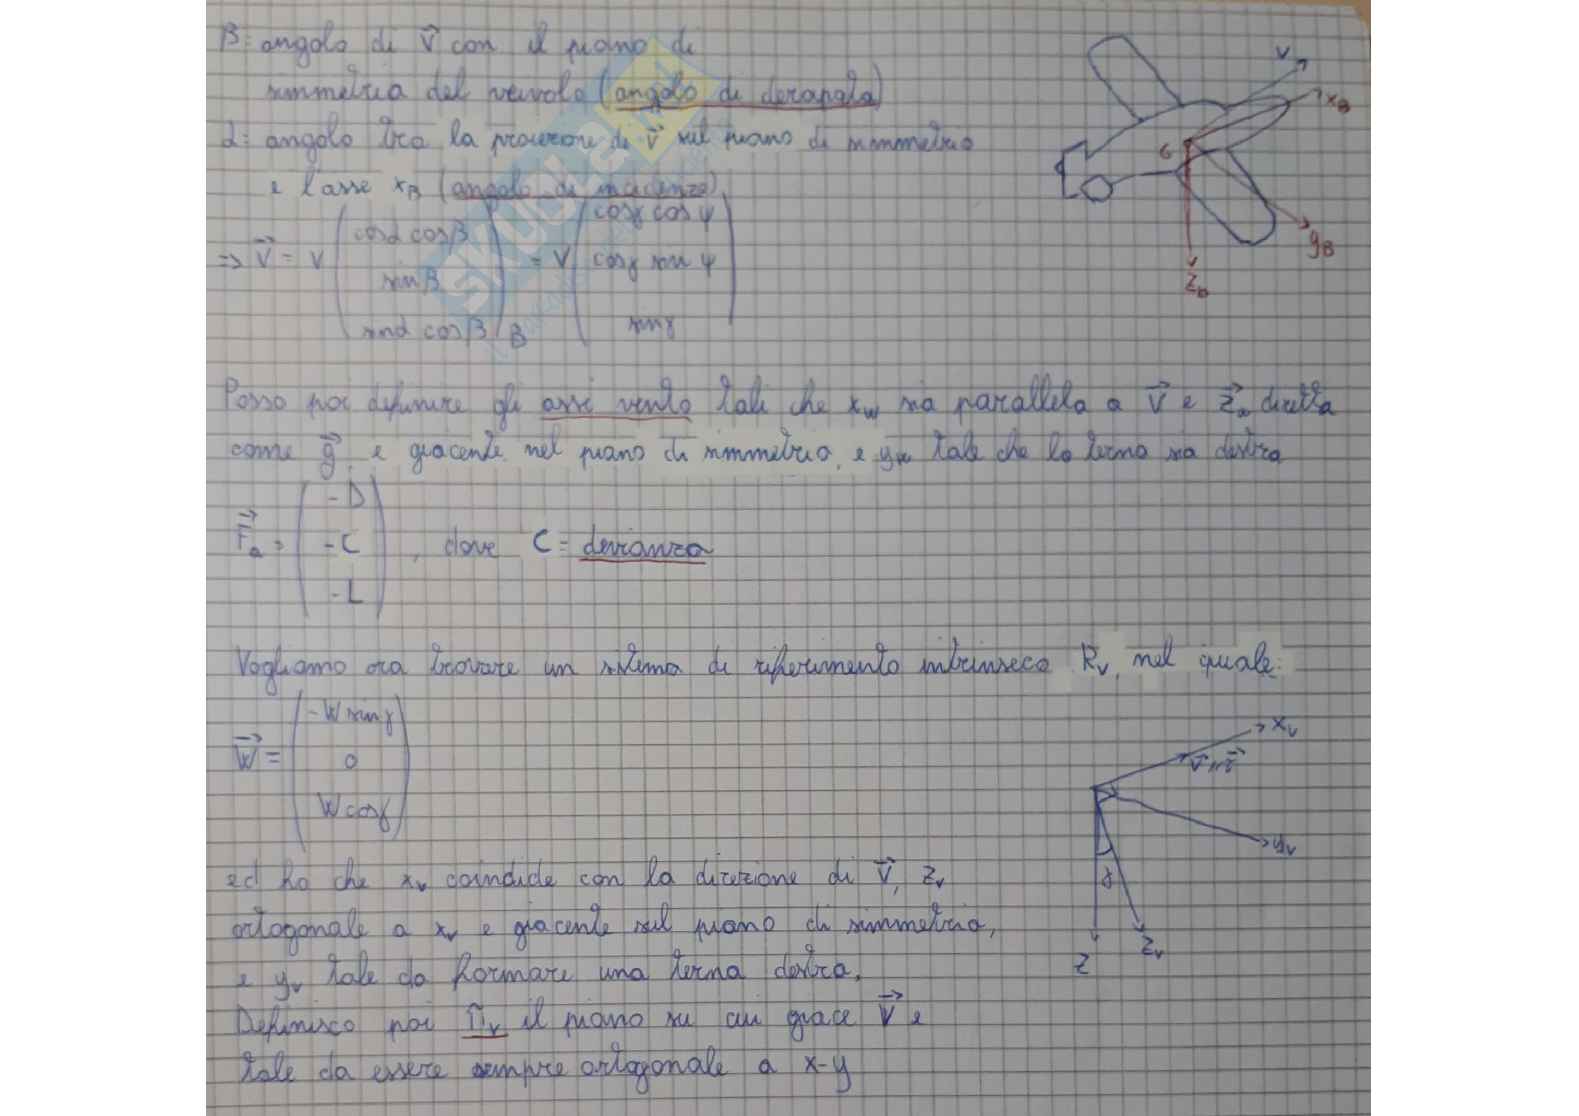 β: angolo di V⃗ con il piano di
simmetria del velivolo (angolo di derapata)
α: angolo tra la proiezione di V⃗ sul piano di simmetria
e l'asse x_B (angolo di incidenza)
=> V⃗ = V (cosα cosβ, sinβ, sinα cosβ)_B = V (cosγ cosψ, cosγ sinψ, sinγ)
V
x_B
G
y_B
z_B
Posso poi definire gli assi vento tali che x_w sia parallela a V⃗ e z⃗_w diretta
come g⃗, e giacente nel piano di simmetria, e y_w tale che la terna sia destra
F⃗_a = (-D, -C, -L), dove C = devianza
Vogliamo ora trovare un sistema di riferimento intrinseco R_v, nel quale:
W⃗ = (-W sinγ, 0, W cosγ)
x_v
y_v
γ
z
z_v
ed ho che x_v coincide con la direzione di V⃗, z_v
ortogonale a x_v e giacente sul piano di simmetria,
e y_v tale da formare una terna destra.
Definisco poi Π_v il piano su cui giace V⃗ e
tale da essere sempre ortogonale a x-y